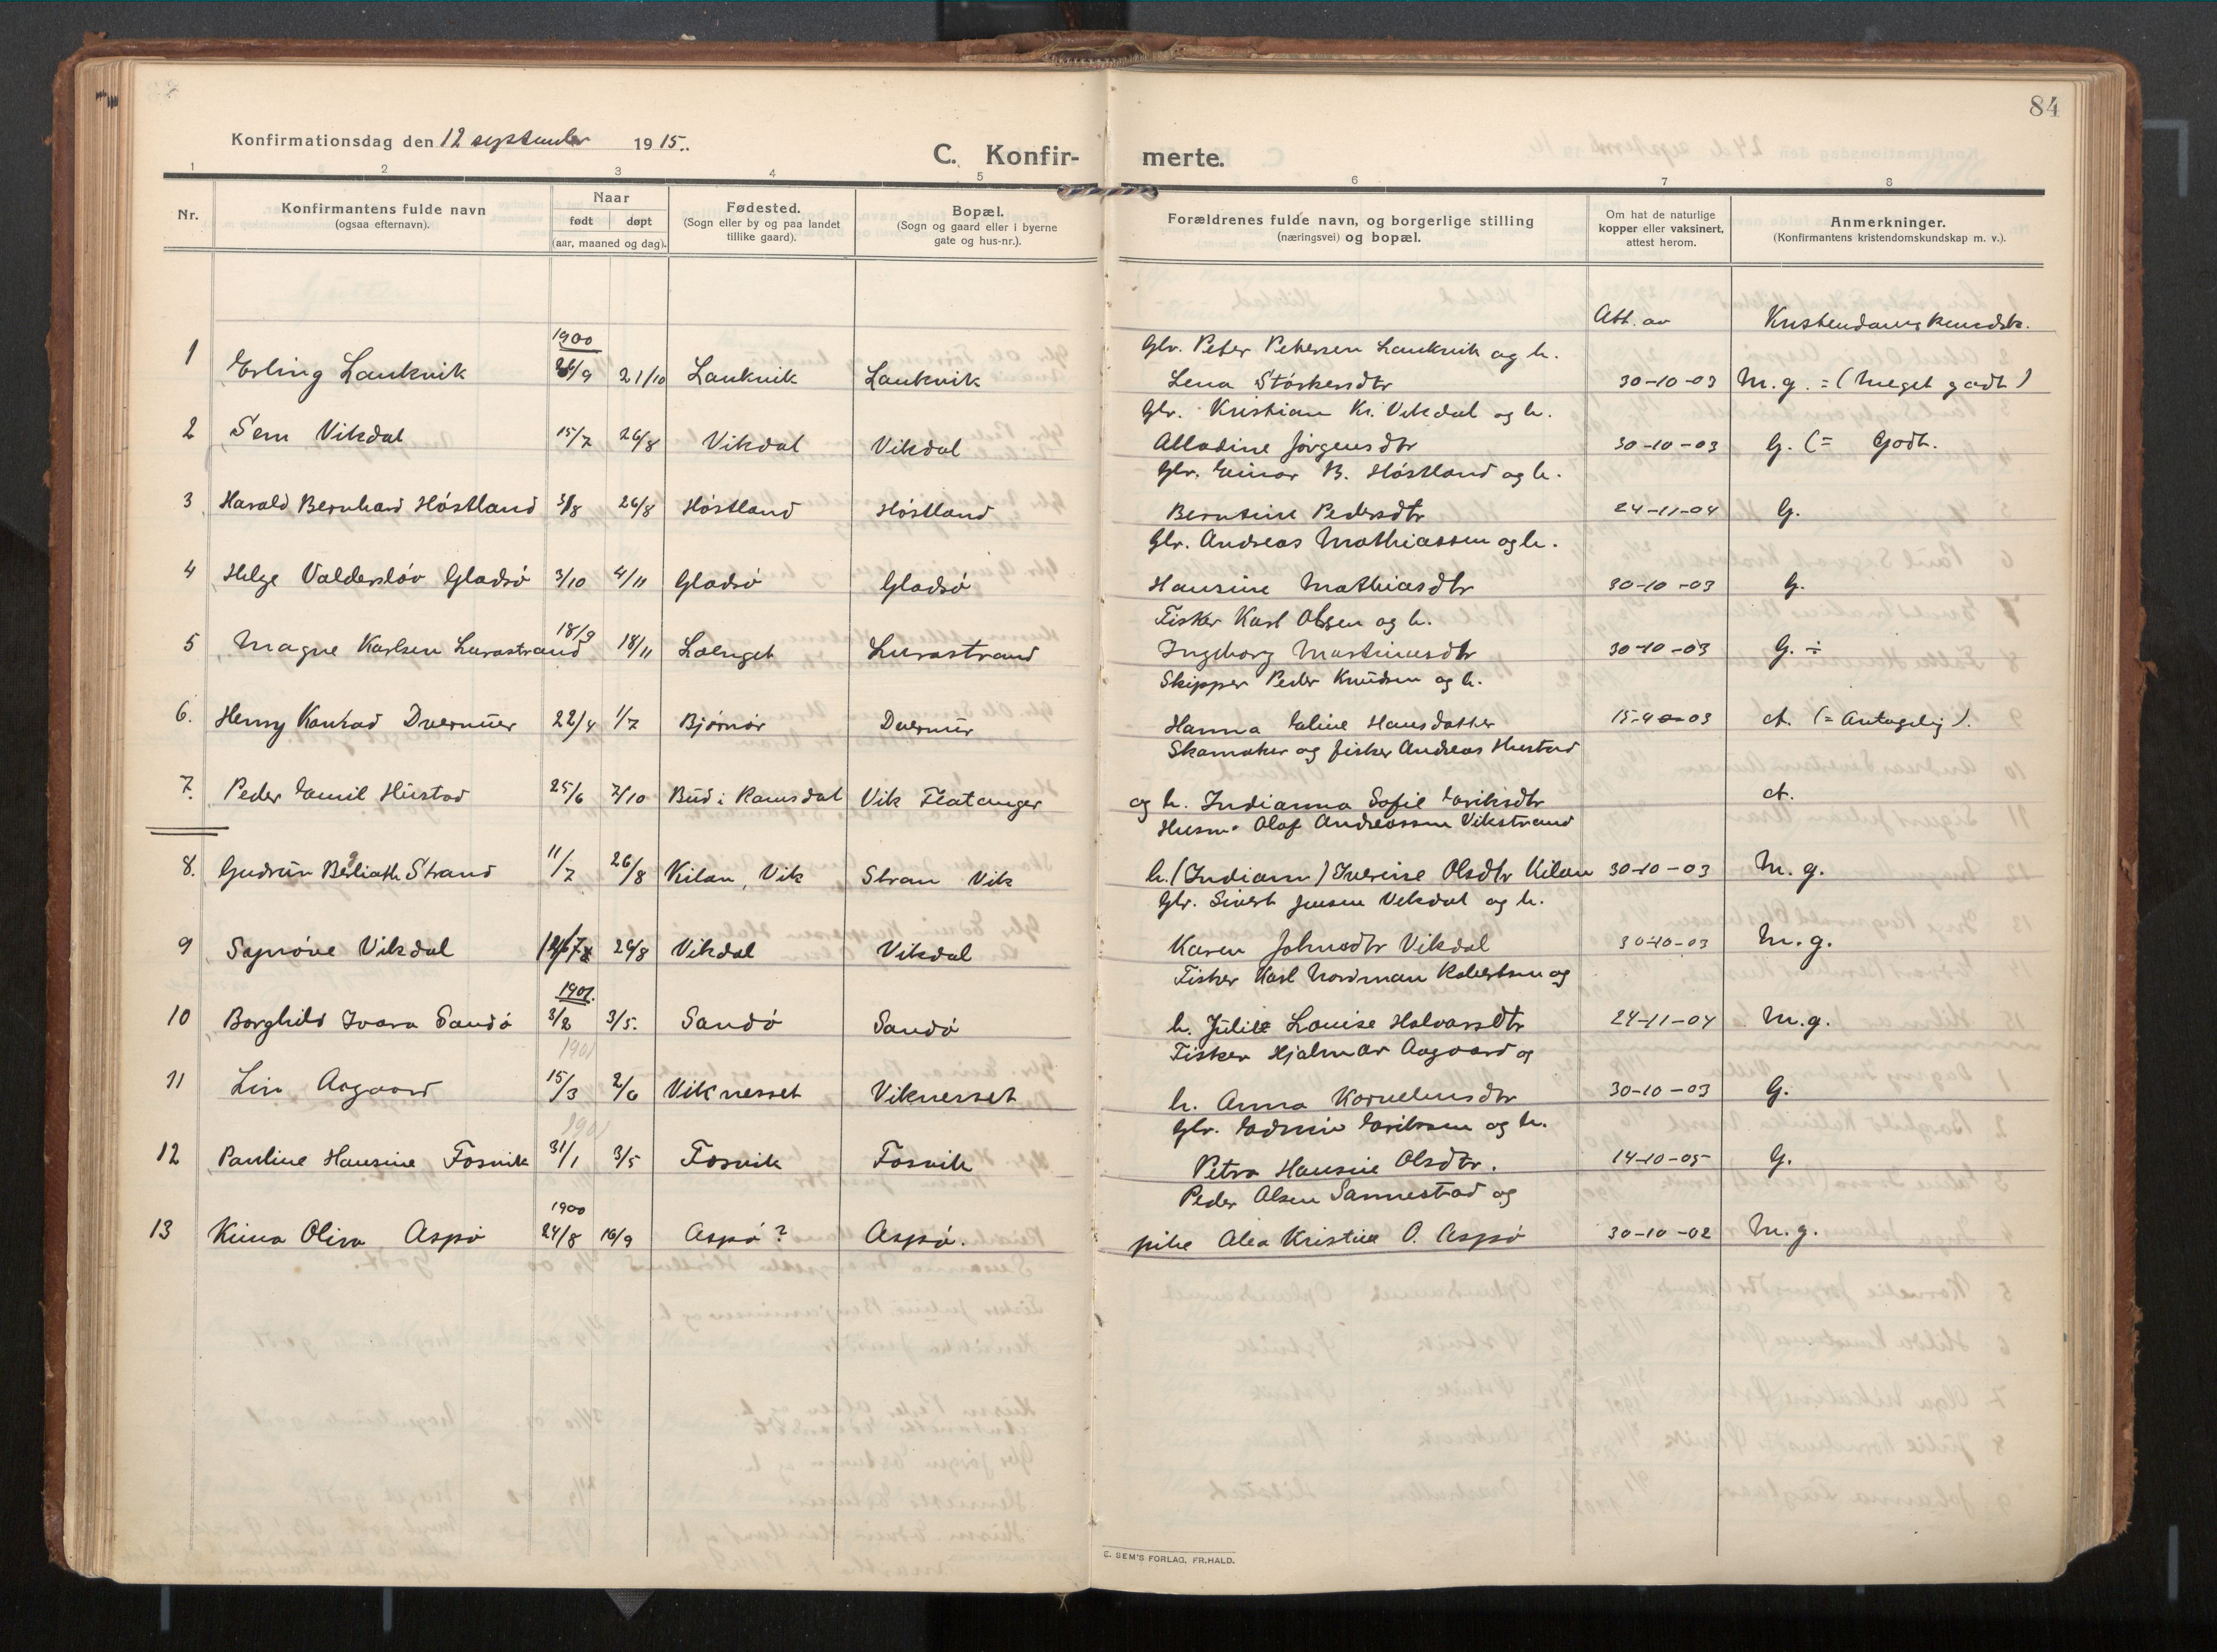 84
Konfirmationsdag den 12 september 1915.
C. Konfir- merte.
1 2 3 4 5 6 7 8
Nr. Konfirmantens fulde navn (ogsaa efternavn). Naar født døpt (aar, maaned og dag). Fødested. (Sogn eller by og paa landet tillike gaard). Bopæl. (Sogn og gaard eller i byerne gate og hus-nr.). Forældrenes fulde navn, og borgerlige stilling (næringsvei) og bopæl. Om hat de naturlige kopper eller vaksinert, attest herom. Anmerkninger. (Konfirmantens kristendomskundskap m. v.).
Att. av Kristendomskundsk.
1900 Glr. Peter Petersen Laukvik og h.
1 Erling Laukvik 26/9 21/10 Laukvik Laukvik Lena Størkersdtr 30-10-03 M.g. = (Meget godt)
Glr. Kristian Kr. Vikdal og h.
2 Sem Vikdal 15/7 26/8 Vikdal Vikdal Alladine Jørgensdtr 30-10-03 G. (= Godt.
Glr. Einar B. Høstland og h.
3 Harald Bernhard Høstland 3/8 26/8 Høstland Høstland Berntine Pedersdtr 24-11-04 G.
Glr. Andreas Mathiassen og h.
4 Helge Gladsø 3/10 4/11 Gladsø Gladsø Hansine Mathiasdtr 30-10-03 G.
Fisker Karl Olsen og h.
5 Magne Karlsen Lurastrand 18/9 18/11 Lurastrand Ingeborg Martinusdtr 30-10-03 G. ÷
Skipper Peder Knudsen og h.
6. Henry Konrad Dvernuer 22/4 1/7 Bjørnør Hanna Eline Hansdatter 15-4-03 ct. (= Antagelig).
Skomaker og fisker Andreas Hustad
7. Peder Emil Hustad 25/6 7/10 Bud i Romsdal Vik Flatanger og h. Indianna Sofie Eriksdtr ct.
Husm. Olaf Andreassen Vikstrand
8. Gudrun Strand 11/7 26/8 Kilan, Vik Stran Vik h. (Indiann) Iverine Olsdtr Kilan 30-10-03 M.g.
Glr. Sivert Jensen Vikdal og h.
9 Synnøve Vikdal 26/8 Vikdal Vikdal Karen Johnsdtr Vikdal 30-10-03 M.g.
1901. Fisker Karl Nordman Robertsen og
10 Borghild Ivara Sandø 3/2 3/5. Sandø Sandø h. Julie Louise Halvarsdtr 24-11-04 M.g.
1901 Fisker Hjalmar Aagaard og
11 Liv Aagaard 15/3 2/6 Viknesset Viknesset h. Anna Korneliusdtr 30-10-03 G.
1901 Glr. Edvin Eriksen og h.
12 Pauline Hansine Fosvik 31/1 3/5 Fosvik Fosvik Petra Hansine Olsdtr. 14-10-05 G.
1900 Peder Olsen Sannestad og
13 Kima Oliva Aspø 24/8 16/9 Aspø? Aspø. pike Alea Kristine O. Aspø 30-10-02 M.g.
E. SEM'S FORLAG, FR.HALD.